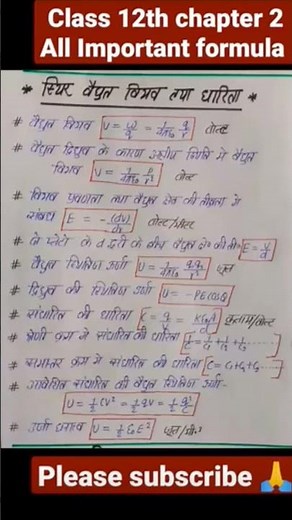 Class 12th chapter 2
All Important formula
* स्थिर वैद्युत विभव तथा धारिता *
# वैद्युत विभव V = W/q = 1/4πε₀ q/r वोल्ट
# वैद्युत द्विध्रुव के कारण अक्षीय स्थिति में वैद्युत
विभव V = 1/4πε₀ p/r² वोल्ट
# विभव प्रवणता तथा वैद्युत क्षेत्र की तीव्रता में
संबंध E = -(dv/dr) वोल्ट/मीटर
# दो प्लेटों के बीच वैद्युत क्षेत्र की E = V/d
# वैद्युत स्थितिज ऊर्जा U = 1/4πε₀ q₁q₂/r जूल
# द्विध्रुव की स्थितिज ऊर्जा U = -PEcosθ
# संधारित्र की धारिता C = q/V = Kε₀A/d कूलाम/वोल्ट
# श्रेणी क्रम में संधारित्र की धारिता
# समान्तर क्रम में संधारित्र की धारिता C = C₁+C₂+C₃---
# आवेशित संधारित्र की वैद्युत स्थितिज ऊर्जा-
U = 1/2 CV² = 1/2 qV = 1/2 q²/C
# ऊर्जा घनत्व U = 1/2 ε₀E² जूल/मी.³
Please subscribe 🙏